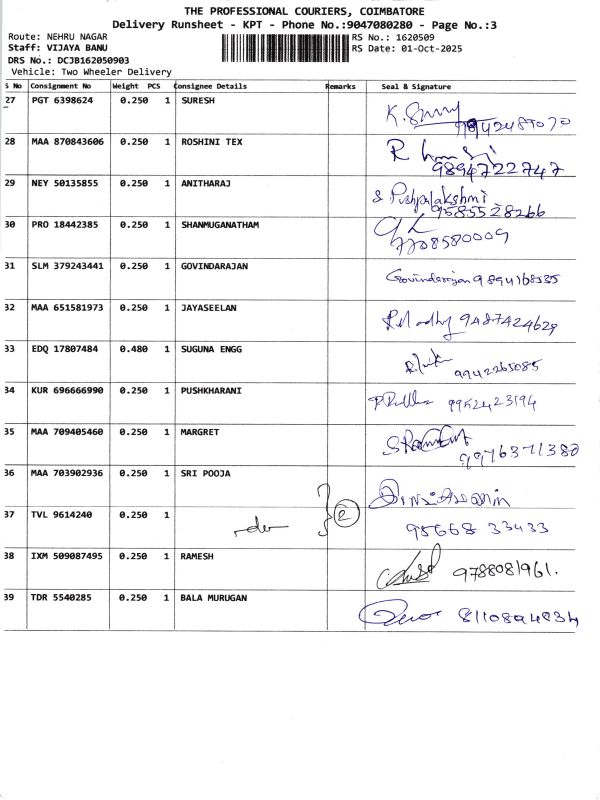 THE PROFESSIONAL COURIERS, COIMBATORE
Delivery Runsheet - KPT - Phone No.:9047080280 - Page No.:3
Route: NEHRU NAGAR
RS No.: 1620509
Staff: VIJAYA BANU
RS Date: 01-Oct-2025
DRS No.: DCJB162050903
Vehicle: Two Wheeler Delivery
S No Consignment No Weight PCS Consignee Details Remarks Seal & Signature
27 PGT 6398624 0.250 1 SURESH
28 MAA 870843606 0.250 1 ROSHINI TEX
9894722747
29 NEY 50135855 0.250 1 ANITHARAJ S Pushpalakshmi
9585528266
30 PRO 18442385 0.250 1 SHANMUGANATHAM
7708580009
31 SLM 379243441 0.250 1 GOVINDARAJAN Govindarajan
32 MAA 651581973 0.250 1 JAYASEELAN 9487424629
33 EDQ 17807484 0.480 1 SUGUNA ENGG
9942265085
34 KUR 696666990 0.250 1 PUSHKHARANI 9952423194
35 MAA 709405460 0.250 1 MARGRET
9976371380
36 MAA 703902936 0.250 1 SRI POOJA
37 TVL 9614240 0.250 1 2 95668 33433
38 IXM 509087495 0.250 1 RAMESH 9788081961.
39 TDR 5540285 0.250 1 BALA MURUGAN 8110894834